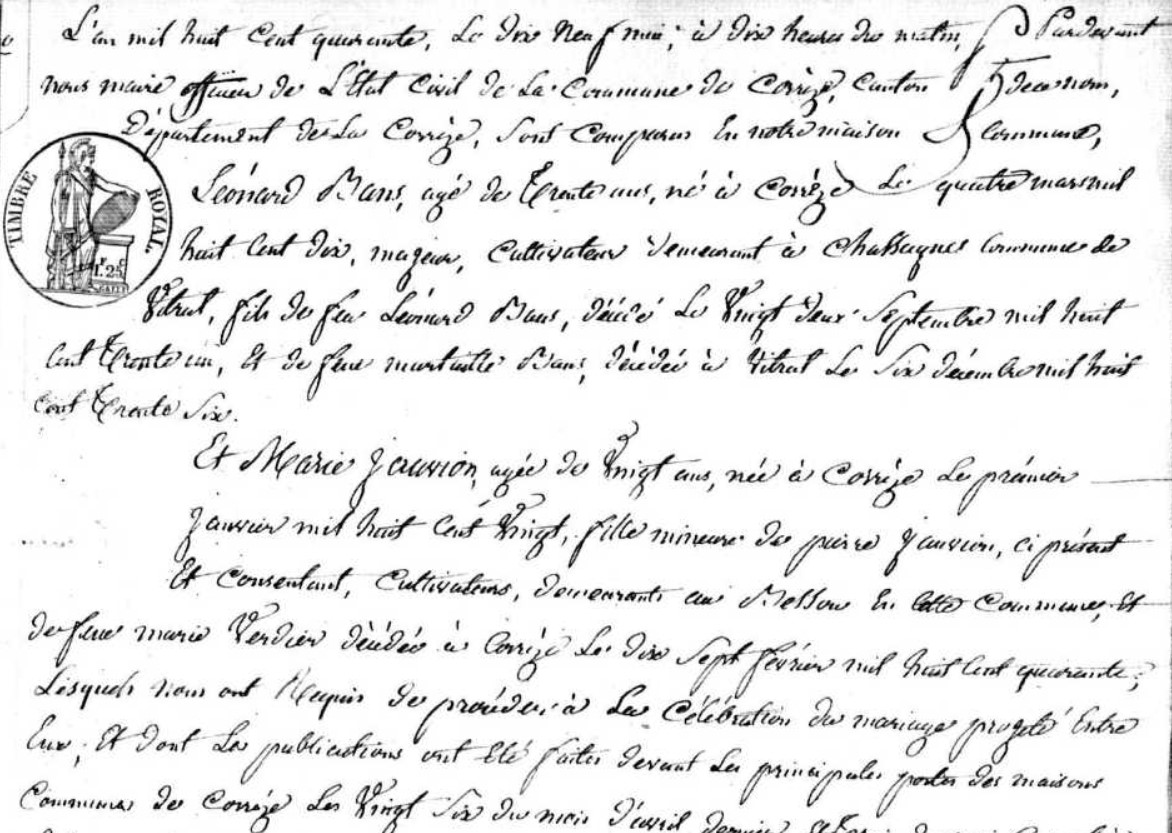 L'an mil huit Cent quarante, Le dix Neuf mai, à dix heures du matin, Pardevant
nous maire officier de L'Etat Civil de La Commune de Corrèze, Canton de ce nom,
Département de La Corrèze, Sont Comparus En notre maison Commune,
TIMBRE ROYAL
Léonard Bans, agé de Trente ans, né à Corrèze Le quatre mars mil
huit Cent dix, majeur, Cultivateur demeurant à Chassagnes Commune de
Vitrat, fils de feu Léonard Bans, décédé Le Vingt deux Septembre mil huit
Cent Trente un, Et de feue Bans, décédée à Vitrat Le Six décembre mil huit
Cent Trente Six.
Et Marie Jauvion, agée de Vingt ans, née à Corrèze Le prémier
Janvier mil huit Cent Vingt, fille mineure de pierre Jauvion, ci présent
Et Consentant, Cultivateurs, demeurants au En Cette Commune, Et
de feue marie Verdier décédée à Corrèze Le dix Sept février mil huit Cent quarante;
Lesquels nous ont Requis de procéder à La Célébration du mariage progeté Entre
Eux, Et dont Les publications ont Eté faites devant Les principales portes des maisons
Communes de Corrèze Les Vingt Six du mois d'avril dernier